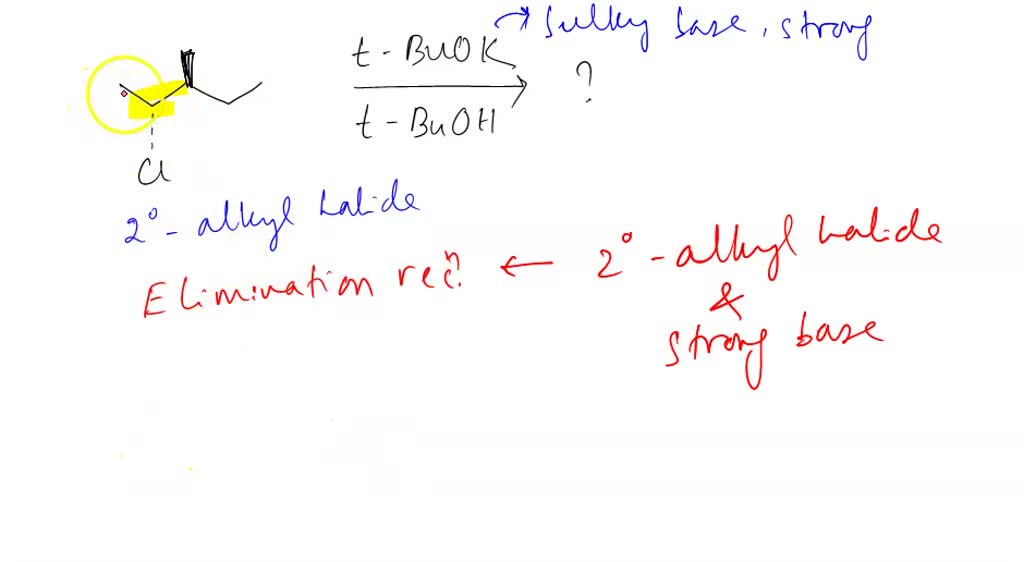 t-BuOK → bulky base, strong
?
t-BuOH
Cl
2°-alkyl halide
Elimination recn. ← 2°-alkyl halide
&
strong base